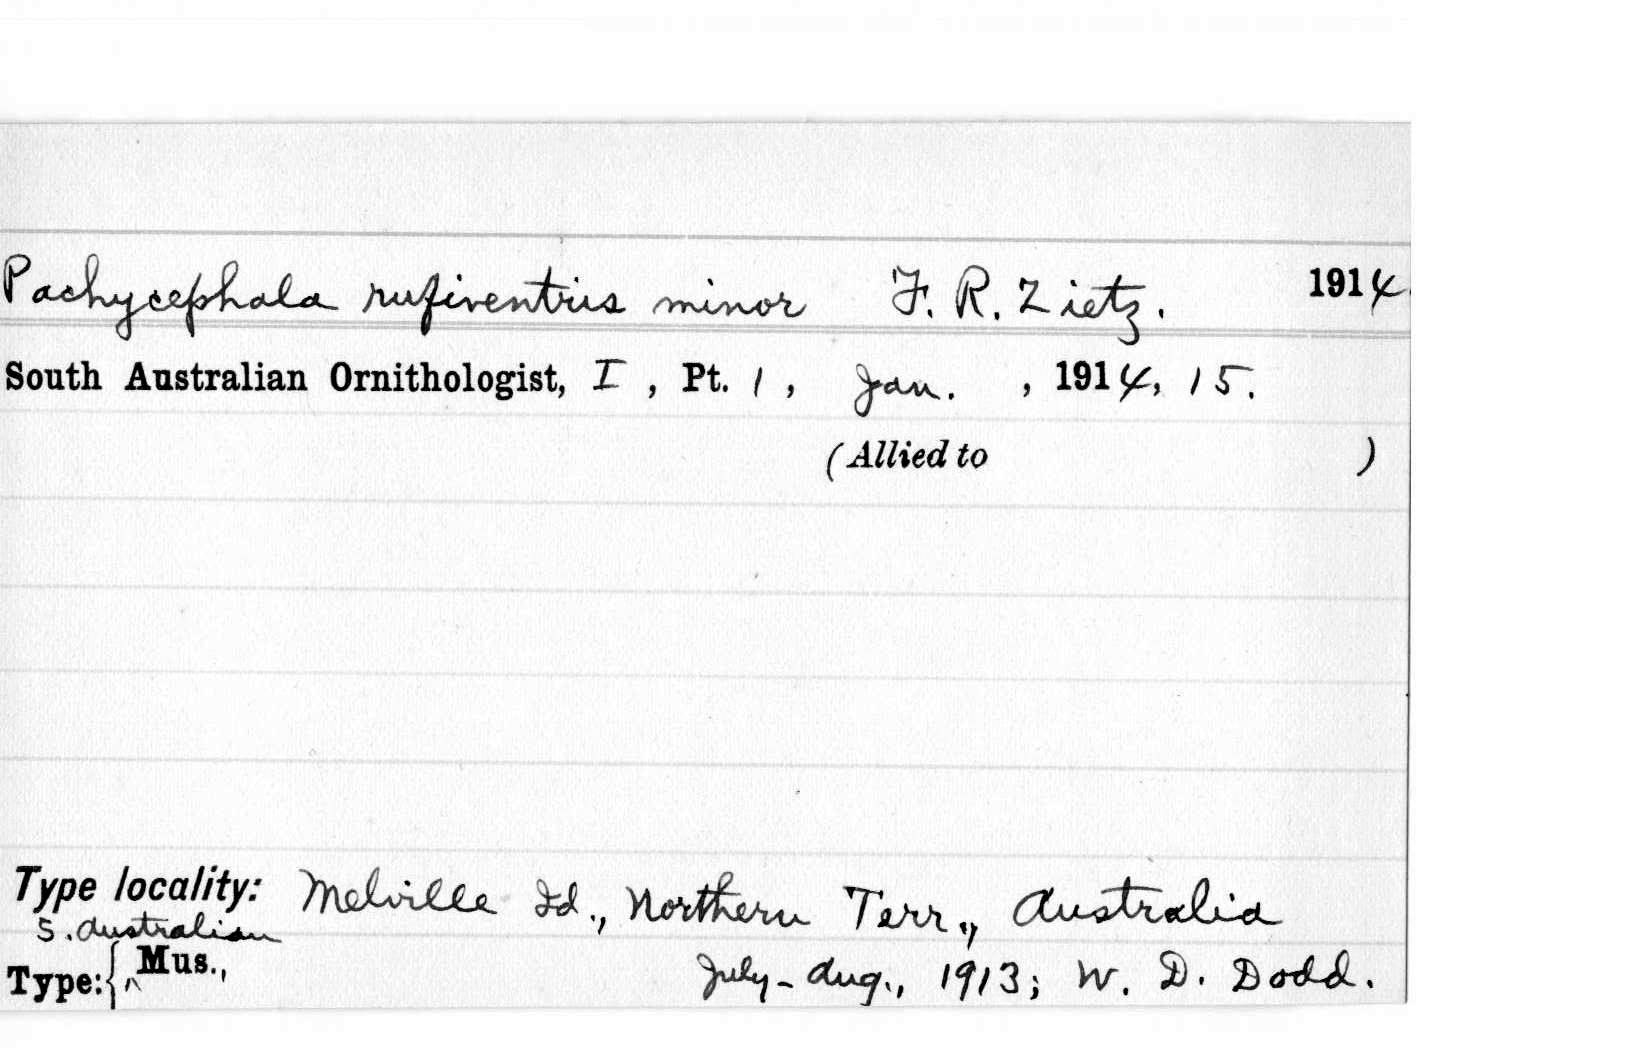 Pachycephala rufiventris minor F. R. Zietz. 1914.
South Australian Ornithologist, I, Pt. 1, Jan. , 1914, 15.
(Allied to )
Type locality: Melville Id., Northern Terr., Australia
S. Australian
Type: { ^ Mus., July-Aug., 1913; W. D. Dodd.